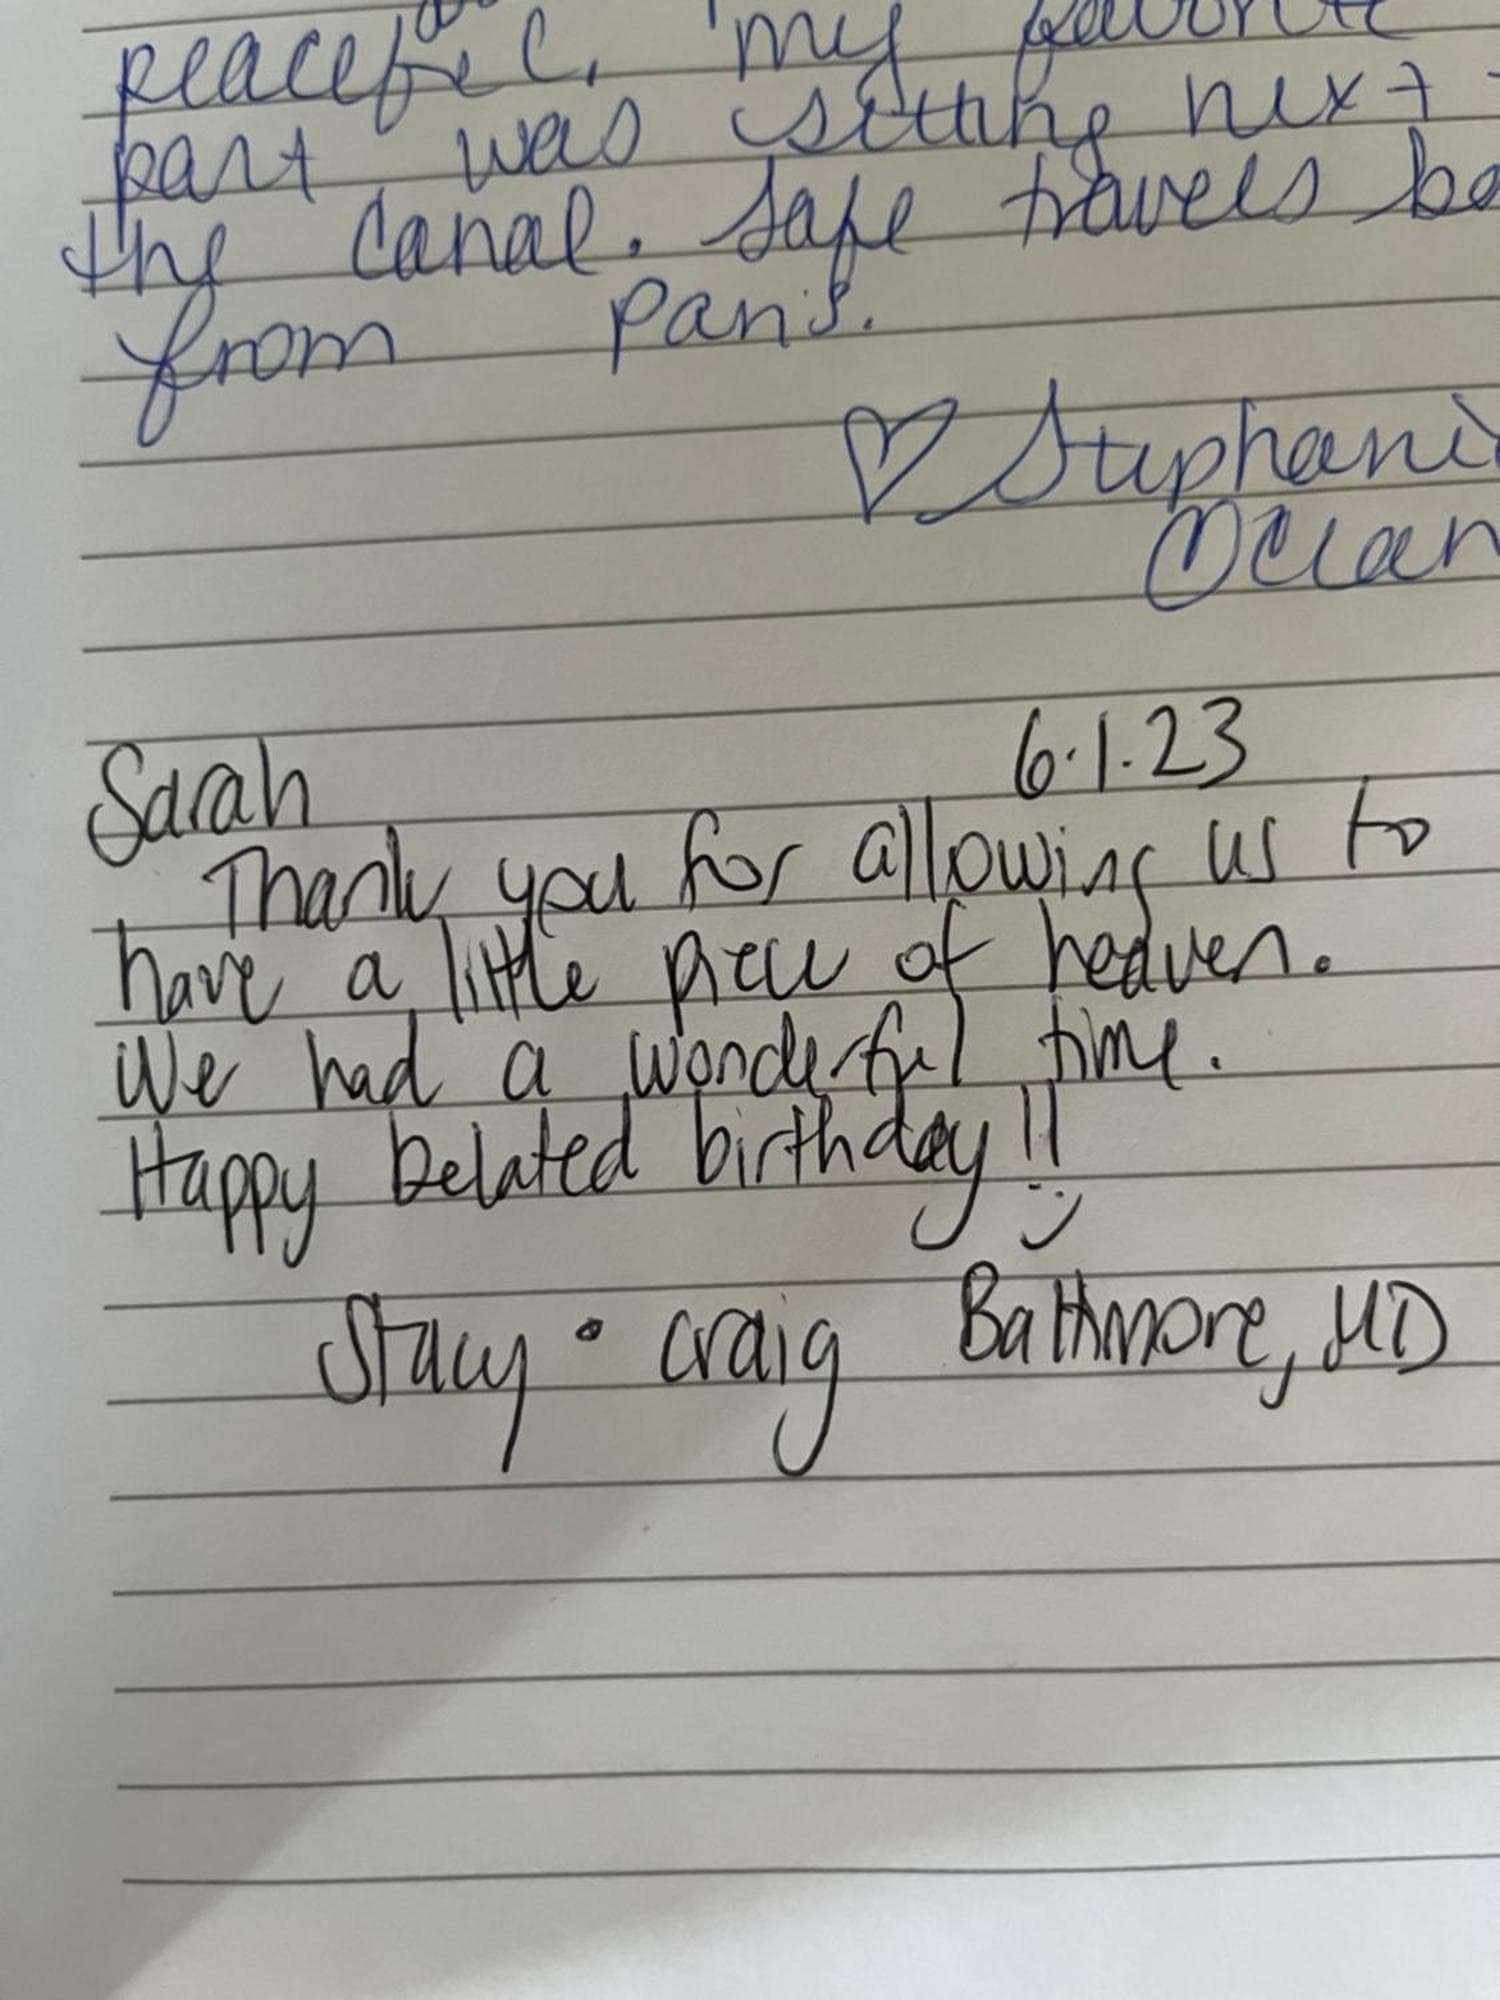 peaceful. my favorite
part was sitting next
the canal. Safe travels
from Paris.
♡ Stephanie
Ocean
Sarah 6.1.23
Thank you for allowing us to
have a little piece of heaven.
We had a wonderful time.
Happy belated birthday!!
:)
Stacy • Craig Baltimore, MD